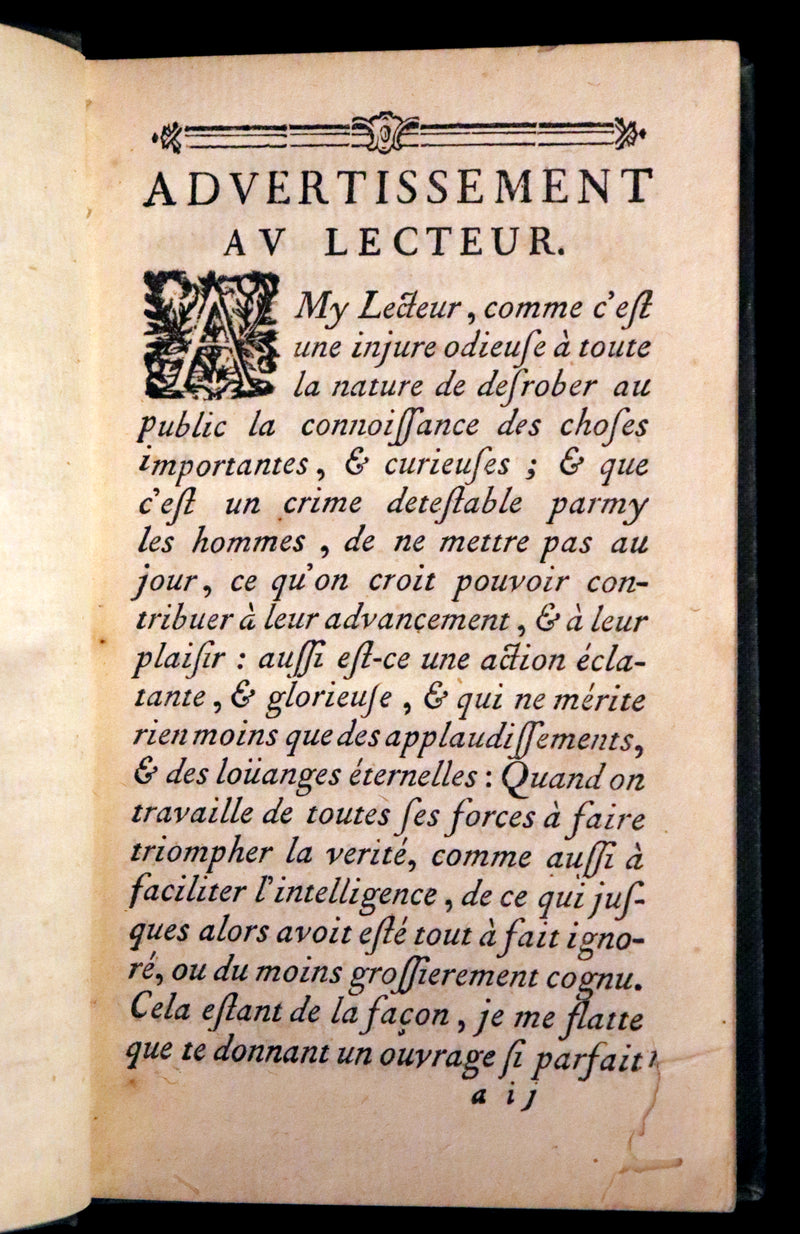 ADVERTISSEMENT
AV LECTEUR.
AMy Lecteur, comme c'eſt
une injure odieuſe à toute
la nature de deſrober au
public la connoiſſance des choſes
importantes, & curieuſes ; & que
c'eſt un crime deteſtable parmy
les hommes , de ne mettre pas au
jour, ce qu'on croit pouvoir con-
tribuer à leur advancement, & à leur
plaiſir : auſſi eſt-ce une action écla-
tante, & glorieuſe , & qui ne mérite
rien moins que des applaudiſſements,
& des loüanges éternelles : Quand on
travaille de toutes ſes forces à faire
triompher la verité, comme auſſi à
faciliter l'intelligence, de ce qui juſ-
ques alors avoit eſté tout à fait igno-
ré, ou du moins groſſierement cognu.
Cela eſtant de la façon, je me flatte
que te donnant un ouvrage ſi parfait
a ij